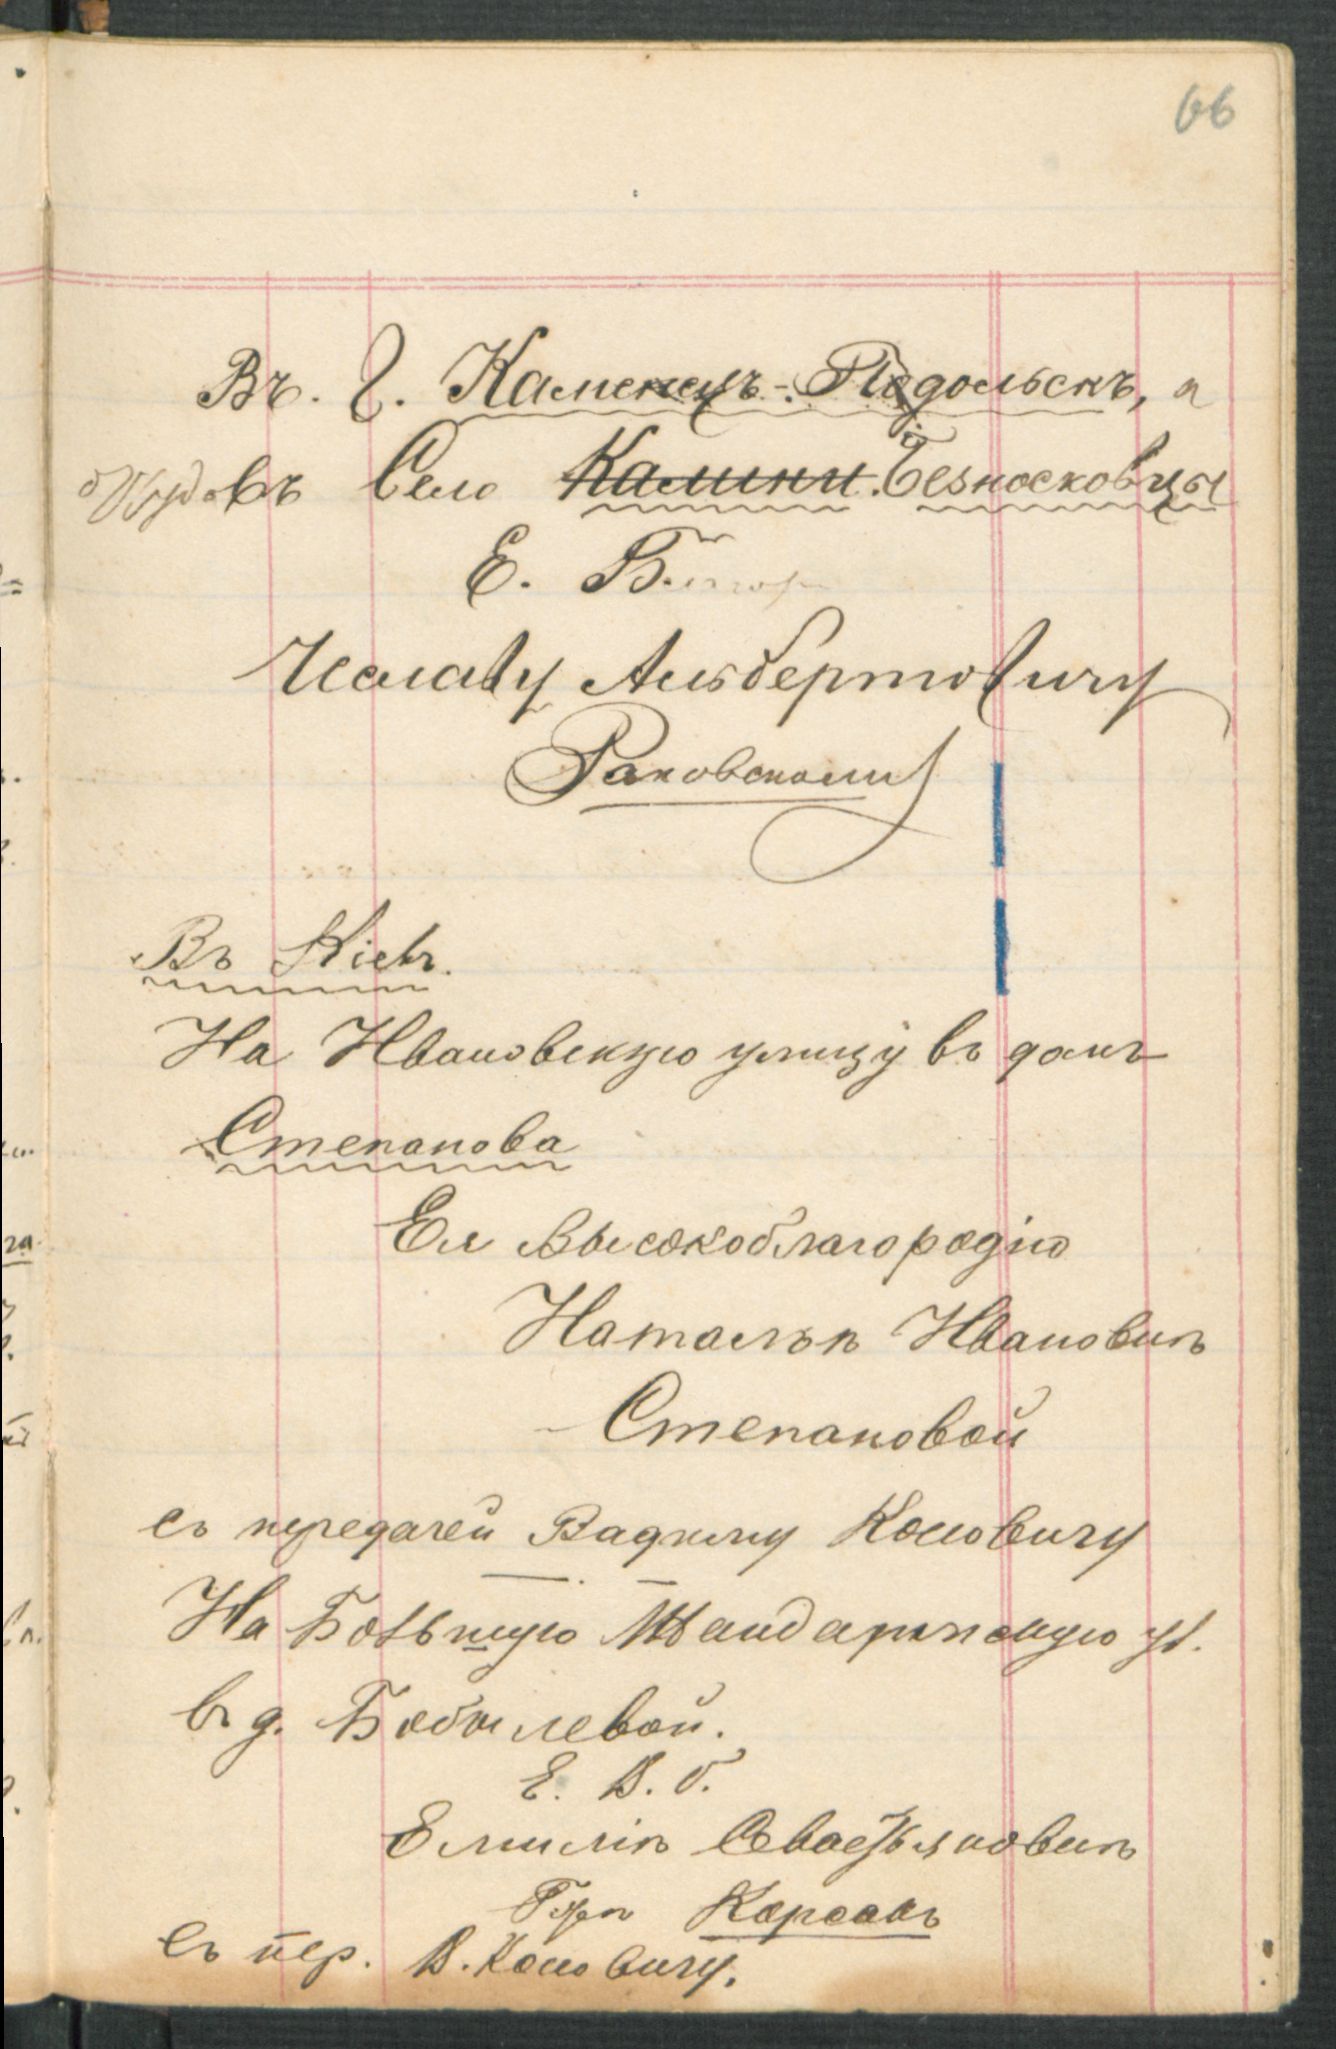 66
Въ. Г. Каменецъ-Подольскъ, а
оттуда въ Село Калини. Безносковцы
Е. Б.
Чеславу Альбертовичу
Раковскому
Въ Кіевъ.
На Ивановскую улицу въ домъ
Степанова
Ея Высокоблагородію
Натальѣ Ивановнѣ
Степановой
съ передачей Вадиму Косовичу
На Большую Жандармскую ул.
въ д. Бобылевой.
Е. В. б.
Емиліи Севастьяновнѣ
Корсакъ
съ пер. В. Косовичу.